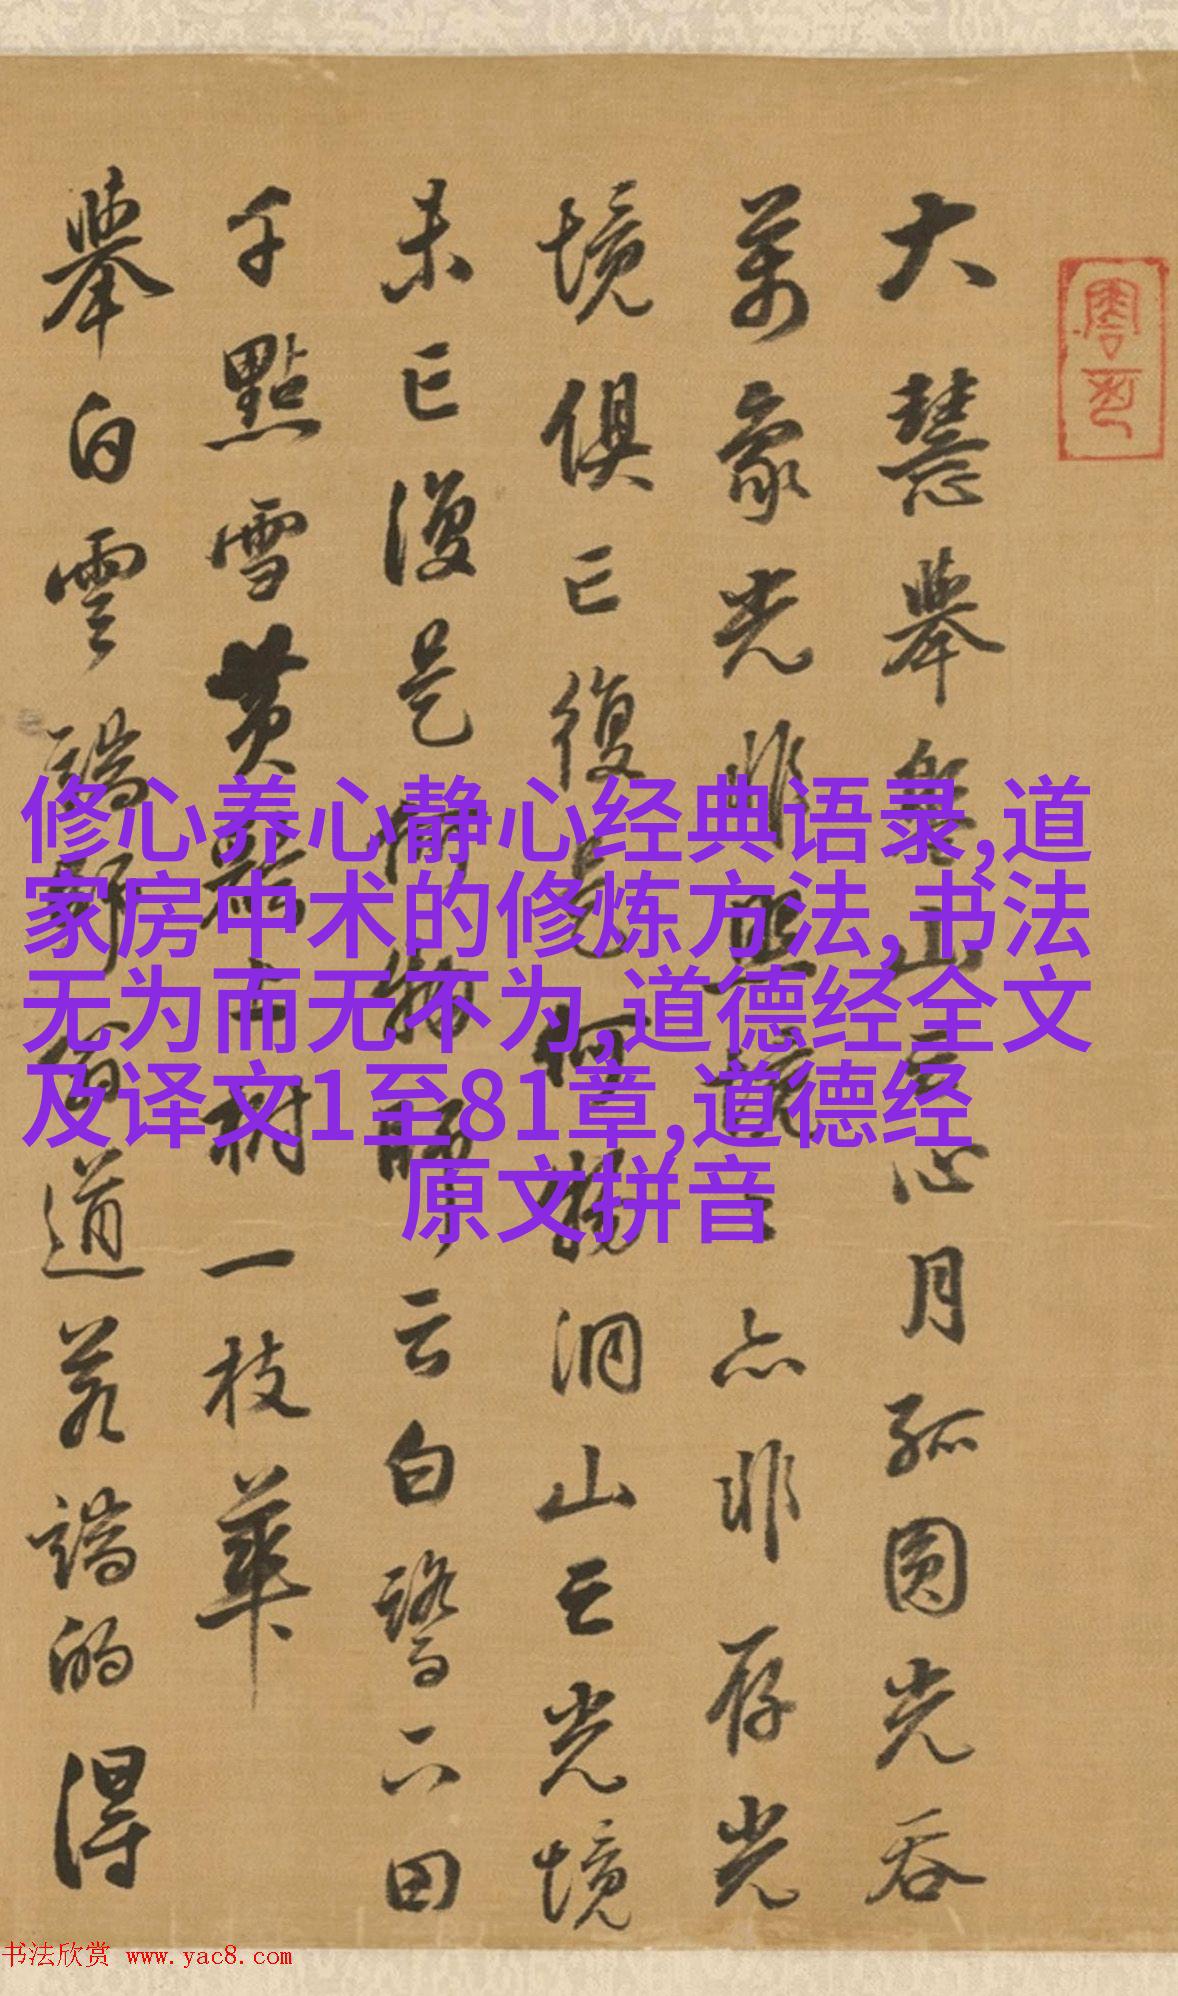 大慧舉盤山云心月孤圓光吞
萬象光非照境〻亦非存光
境俱亡復是何物洞山云光境
未亡復是何物師云白鷺下田
千點雪黃鸝上樹一枝華
舉白雲端道若端的得
修心养心静心经典语录,道
家房中术的修炼方法,书法
无为而无不为,道德经全文
及译文1至81章,道德经
原文拼音
书法欣赏 www.yac8.com